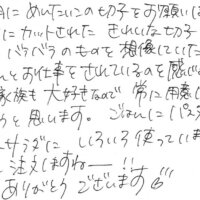 用に めんたいこの切子をお願いし
にカットされた きれいな切子
バラバラのものを想像していた
んとお仕事をされているのを感じ
家族も大好きなので 常に用意し
うと思います。 ごはんに パスタ
にサラダに いろいろ使っていま
ご注文しますねー!!
ありがとう ございます